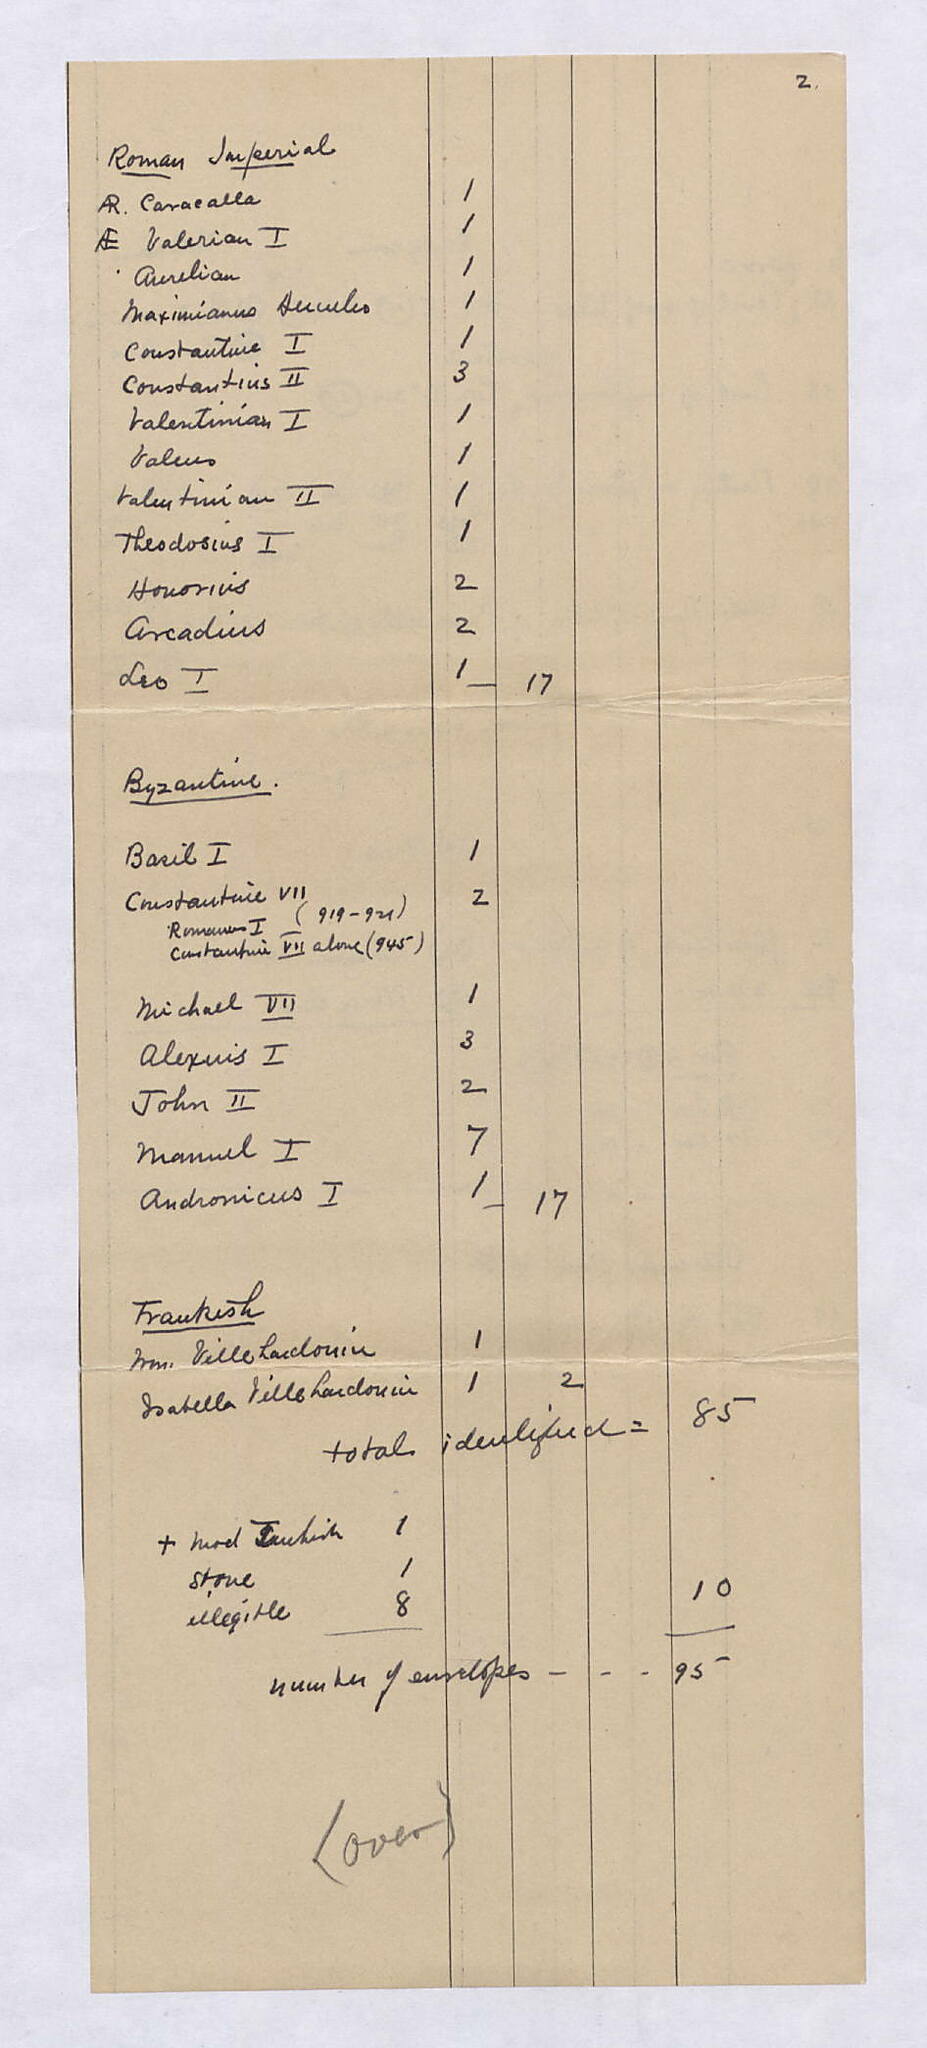 2.
Roman Imperial
AR. Caracalla 1
Æ Valerian I 1
Aurelian 1
Maximianus Herculeo 1
Constantine I 1
Constantius II 3
Valentinian I 1
Valens 1
Valentinian II 1
Theodosius I 1
Honorius 2
Arcadius 2
Leo I 1 — 17
Byzantine.
Basil I 1
Constantine VII 2
Romanus I (919-921)
Constantine VII alone (945)
Michael VII 1
Alexuis I 3
John II 2
Manuel I 7
Andronicus I 1 — 17
Frankish
Wm. Villehardouin 1
Isabella Villehardouin 1 2
total identified = 85
+ Mod Turkish 1
stone 1 10
illegible 8
number of envelopes - - - 95
(over)